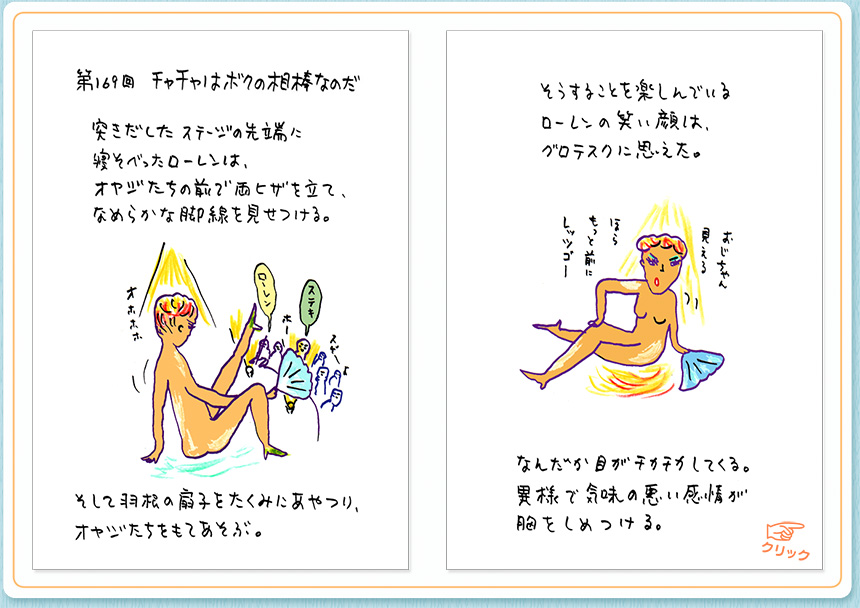 第169回 チャチャはボクの相棒なのだ
突きだした ステージの先端に
寝そべったローレンは、
オヤジたちの前で両ヒザを立て、
なめらかな脚線を見せつける。
オホホホ
ローレン
ステキ
ホー
スゲーよ
そして羽根の扇子をたくみにあやつり、
オヤジたちをもてあそぶ。
そうすることを楽しんでいる
ローレンの笑い顔は、
グロテスクに思えた。
おじちゃん
見える
ほら
もっと前に
レッツゴー
なんだか目がチカチカしてくる。
異様で気味の悪い感情が
胸をしめつける。
クリック